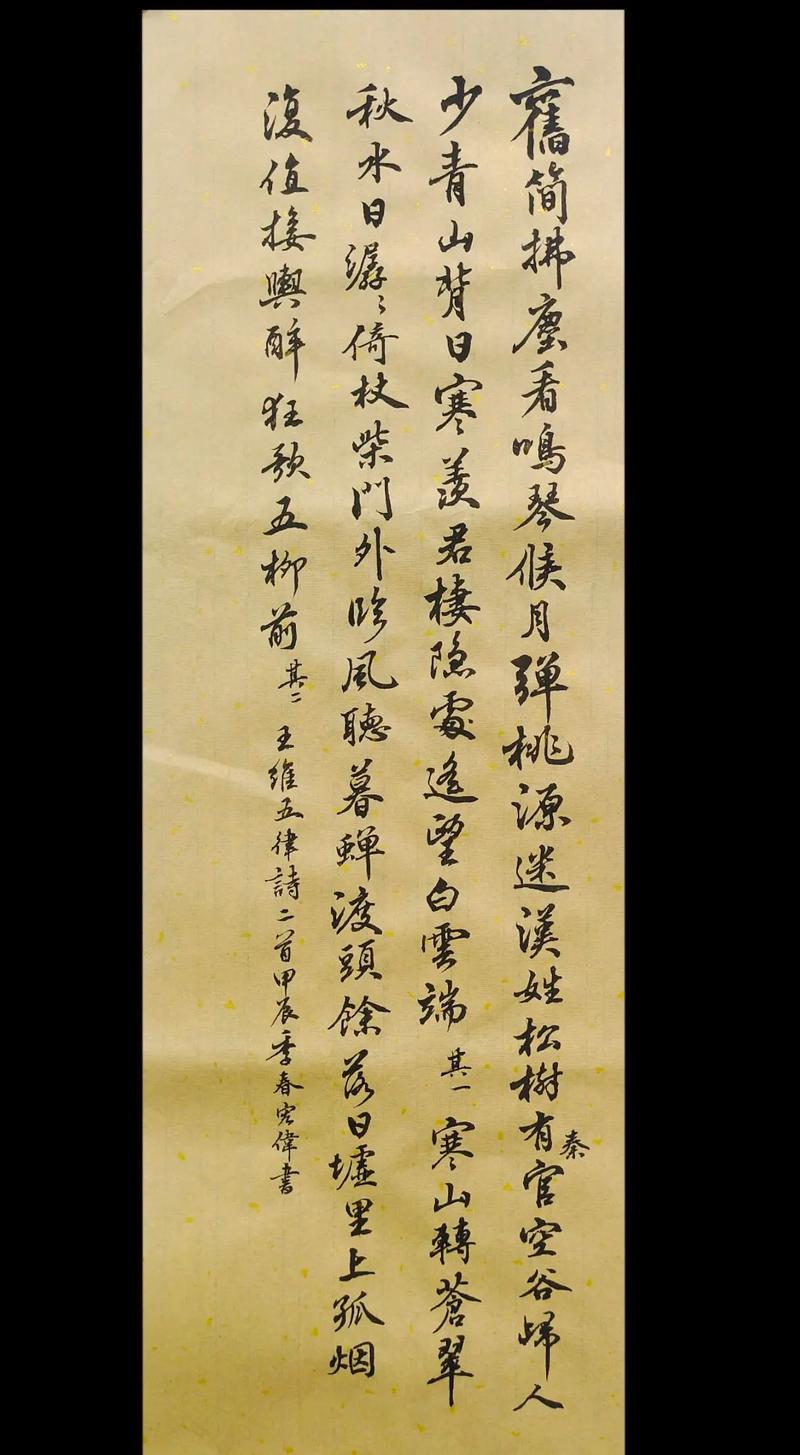 舊簡拂塵看鳴琴候月彈桃源迷漢姓松樹有秦官空谷歸人
少青山背日寒羨君棲隐處遙望白雲端 其一 寒山轉蒼翠
秋水日潺〻倚杖柴門外臨風聽暮蟬渡頭餘落日墟里上孤烟
復值接輿醉狂歌五柳前 其二 王維五律詩二首甲辰季春宏偉書